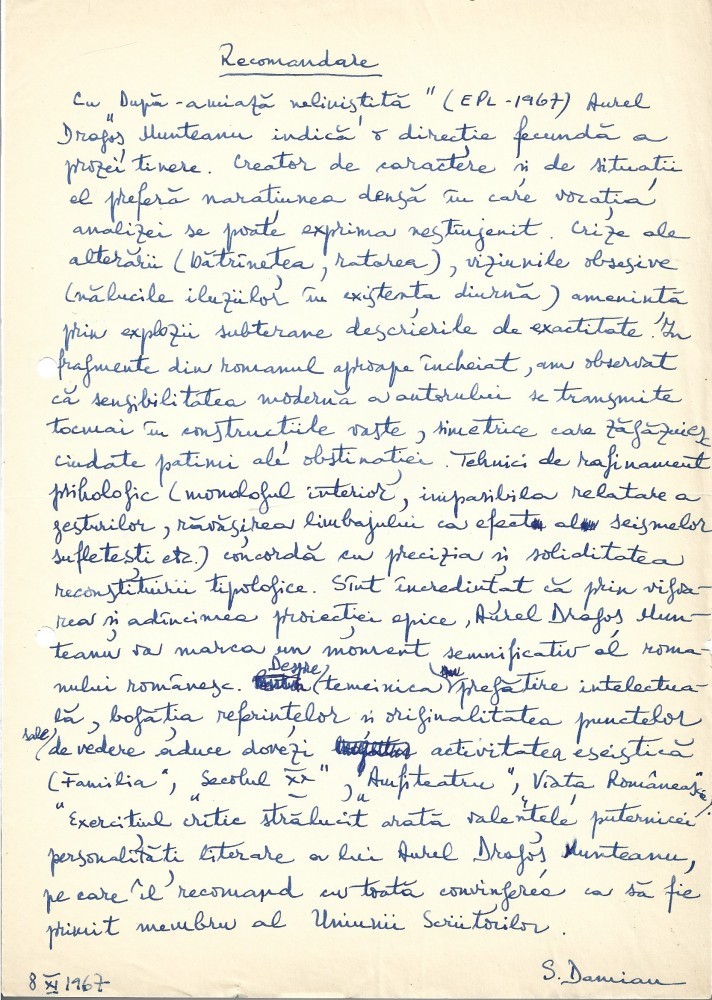 Recomandare
Cu „După-amiază neliniștită" (EPL-1967) Aurel
Dragoș Munteanu indică o direcție fecundă a
prozei tinere. Creator de caractere și de situații
el preferă narațiunea densă în care vocația
analizei se poate exprima nestingenit. Crize ale
alterării (bătrînețea, ratarea), viziunile obsesive
(nălucile iluziilor în existența diurnă) amenință
prin explozii subterane descrierile de exactitate. In
fragmente din romanul aproape încheiat, am observat
că sensibilitatea modernă a autorului se transmite
tocmai în construcțiile vaste, simetrice care zăgăzuiesc
ciudate patimi ale obstinației. Tehnici de rafinament
psihologic (monologul interior, impasibila relatare a
gesturilor, răvășirea limbajului ca efect al seismelor
sufletești etc.) concordă cu precizia și soliditatea
reconstituirii tipologice. Sînt încredințat că prin vigoa-
rea și adîncimea proiecției epice, Aurel Dragoș Mun-
teanu va marca un moment semnificativ al roma-
nului românesc. Despre temeinica pregătire intelectua-
lă, bogăția referințelor și originalitatea punctelor
sale de vedere aduce dovezi activitatea eseistică
(„Familia", „Secolul XX", „Amfiteatru", „Viața Românească").
Exercițiul critic strălucit arată valențele puternicei
personalități literare a lui Aurel Dragoș Munteanu,
pe care îl recomand cu toată convingerea ca să fie
primit membru al Uniunii Scriitorilor.
8 XI 1967
S. Damian